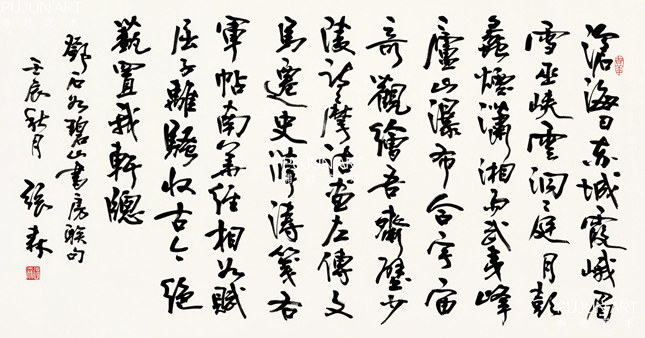 滄海日赤城霞峨眉
雪巫峽雲洞庭月彭
蠡煙瀟湘雨武夷峰
廬山瀑布合宇宙
奇觀繪吾齋壁少
陵詩摩詰畫左傳文
馬遷史薛濤箋右
軍帖南華經相如賦
屈子離騷收古今絕
藝置我軒窗
鄧石如碧山書房聯句
壬辰秋月 張森
PUJUN ART